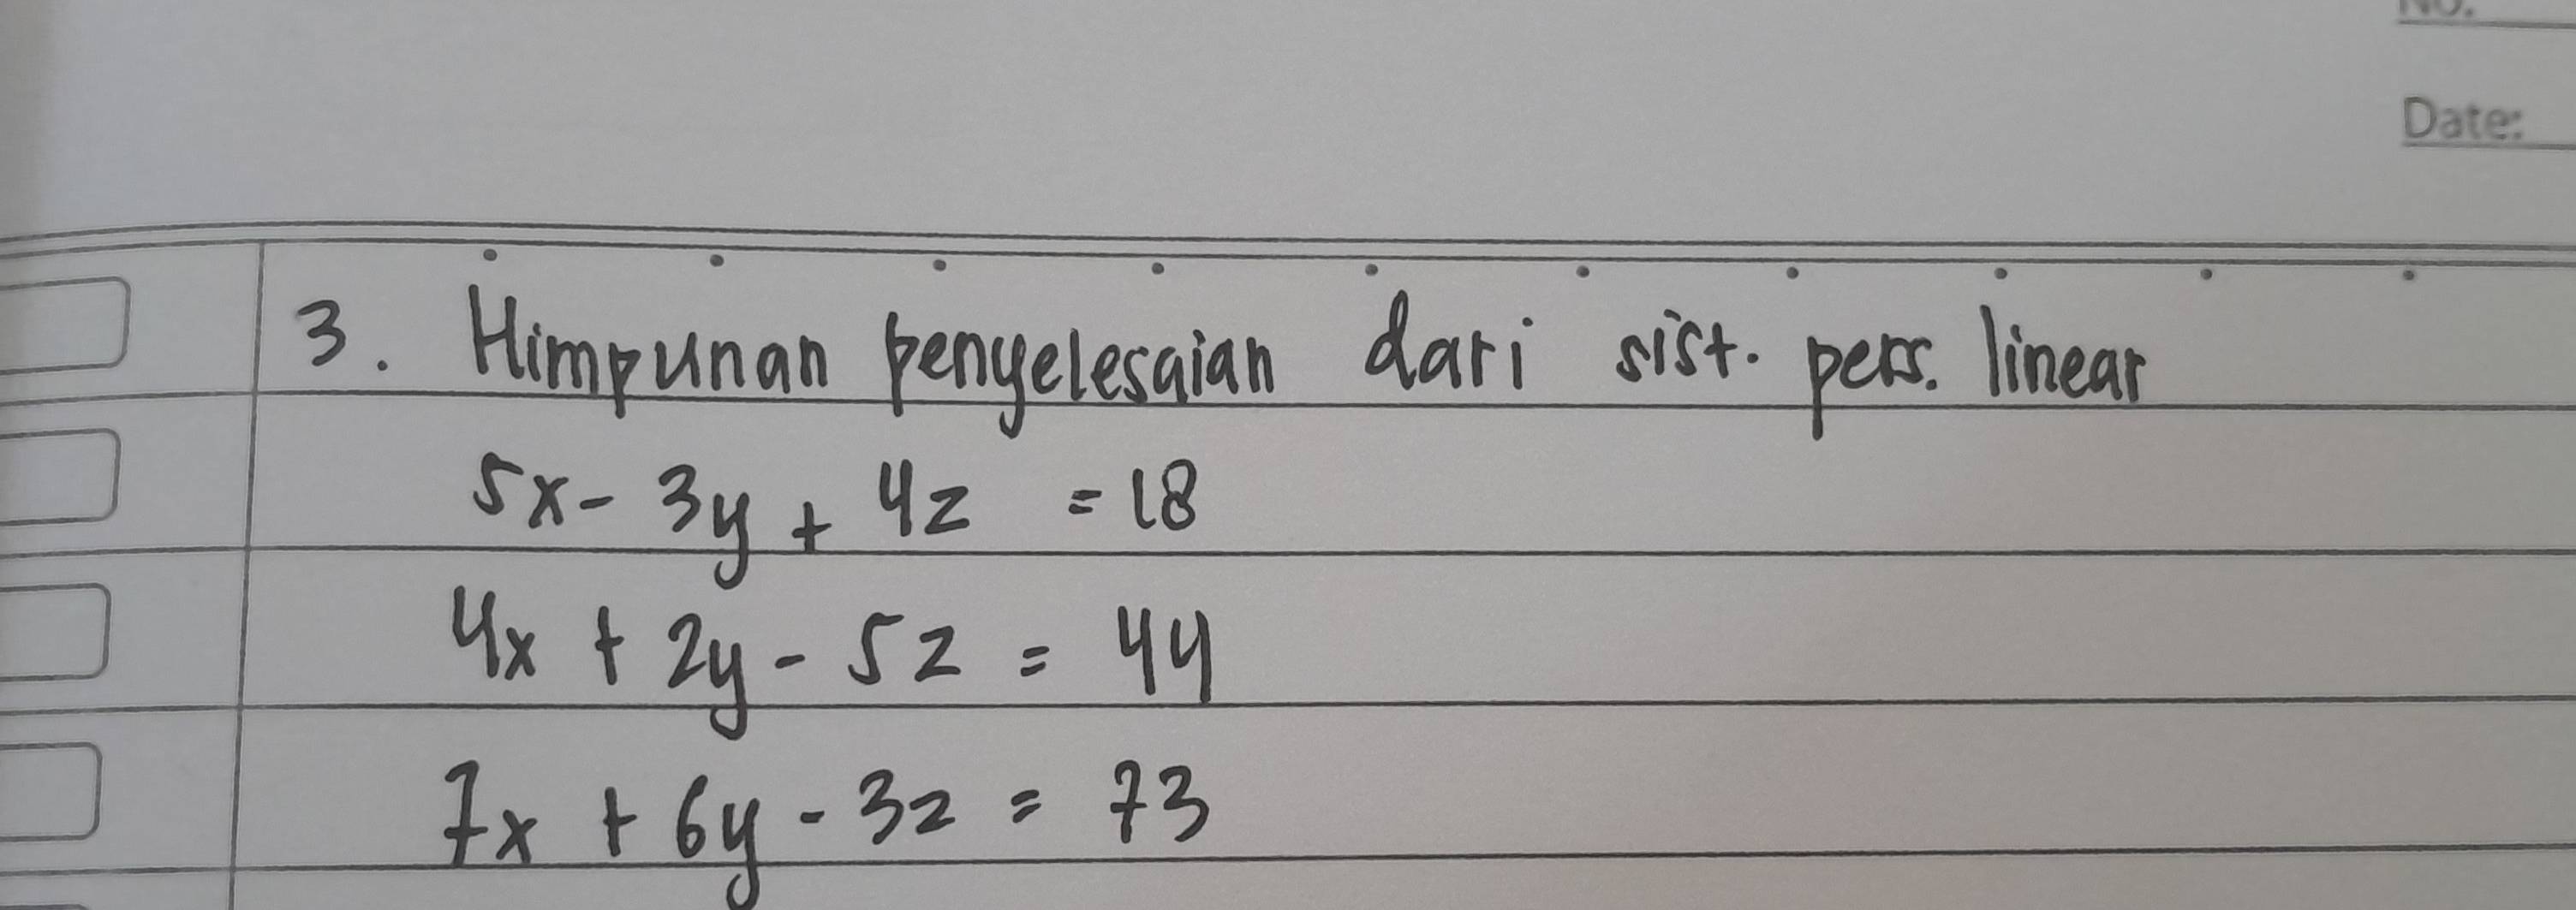 Date:
3. Himpunan penyelesaian dari sist. pers. linear
5x - 3y + 4z = 18
4x + 2y - 5z = 44
7x + 6y - 3z = 73